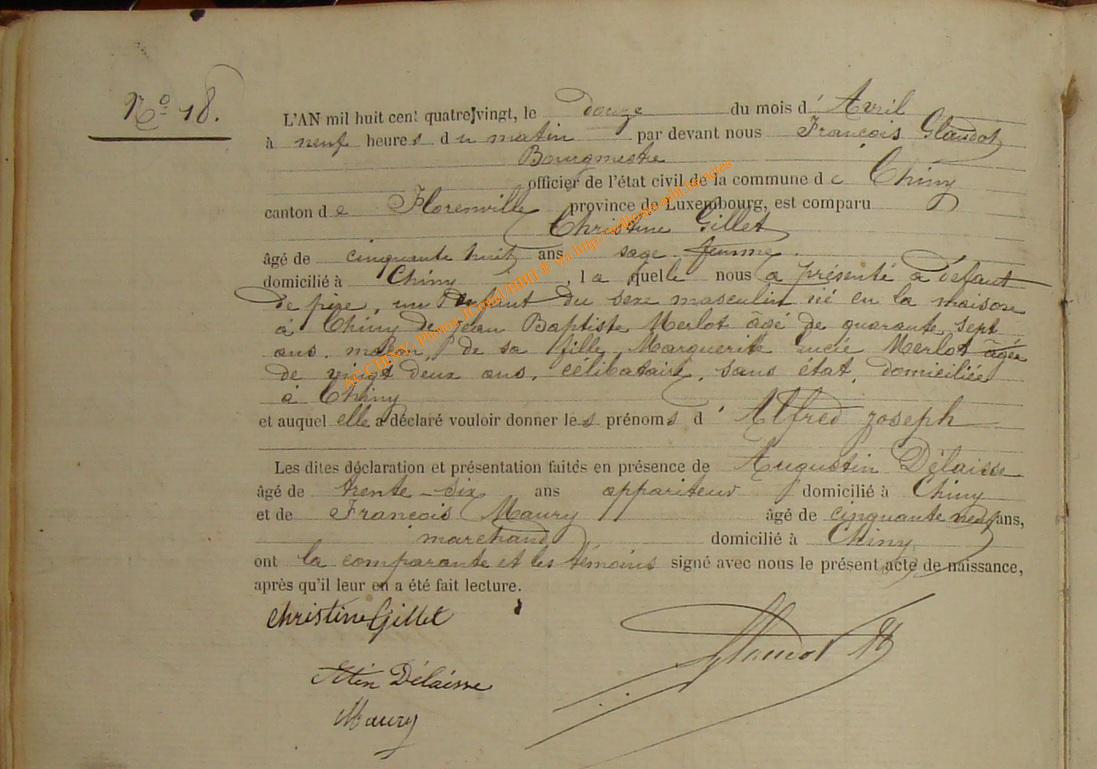 No 18.
L'AN mil huit cent quatre vingt, le douze du mois d' Avril
à neuf heures du matin par devant nous François Glaudot
Bourgmestre
officier de l'état civil de la commune de Chiny
canton de Florenville province de Luxembourg, est comparu
Christine Gillet
âgé de cinquante huit ans sage femme.
domicilié à Chiny, la quelle nous a présenté à défaut
de père, un Enfant du sexe masculin né en la maison
à Chiny de Jean Baptiste Merlot âgé de quarante sept
ans, maçon, de sa fille Marguerite Lucie Merlot âgée
de vingt deux ans, célibataire, sans état, domiciliée
à Chiny
et auquel elle a déclaré vouloir donner les prénoms d' Alfred Joseph
Les dites déclaration et présentation faites en présence de Augustin Délaisse
âgé de trente-six ans appariteur domicilié à Chiny
et de François Maury âgé de cinquante neuf ans,
marchand domicilié à Chiny
ont la comparante et les témoins signé avec nous le présent acte de naissance,
après qu'il leur en a été fait lecture.
Christine Gillet
Glaudot
Délaisse
Maury